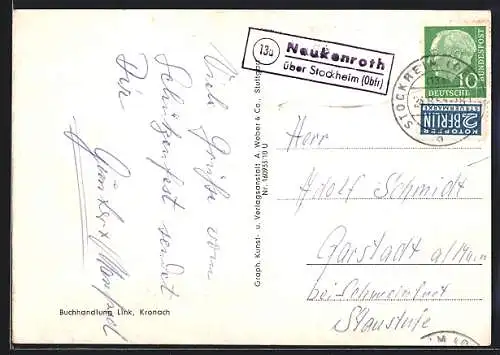 13a
Neukenroth
über Stockheim (Obfr)
DEUTSCHE
BUNDESPOST
10
STOCKHEIM
NOTOPFER
2 BERLIN
STEUERMARKE
Viele Grüße vom
Schützenfest sendet
Dir
Graph. Kunst- u. Verlagsanstalt A. Weber & Co., Stuttgart
Nr. 160953110 U
Herr
Adolf Schmidt
Garstadt a/Main
bei Schweinfurt
Staustufe
Buchhandlung Link, Kronach